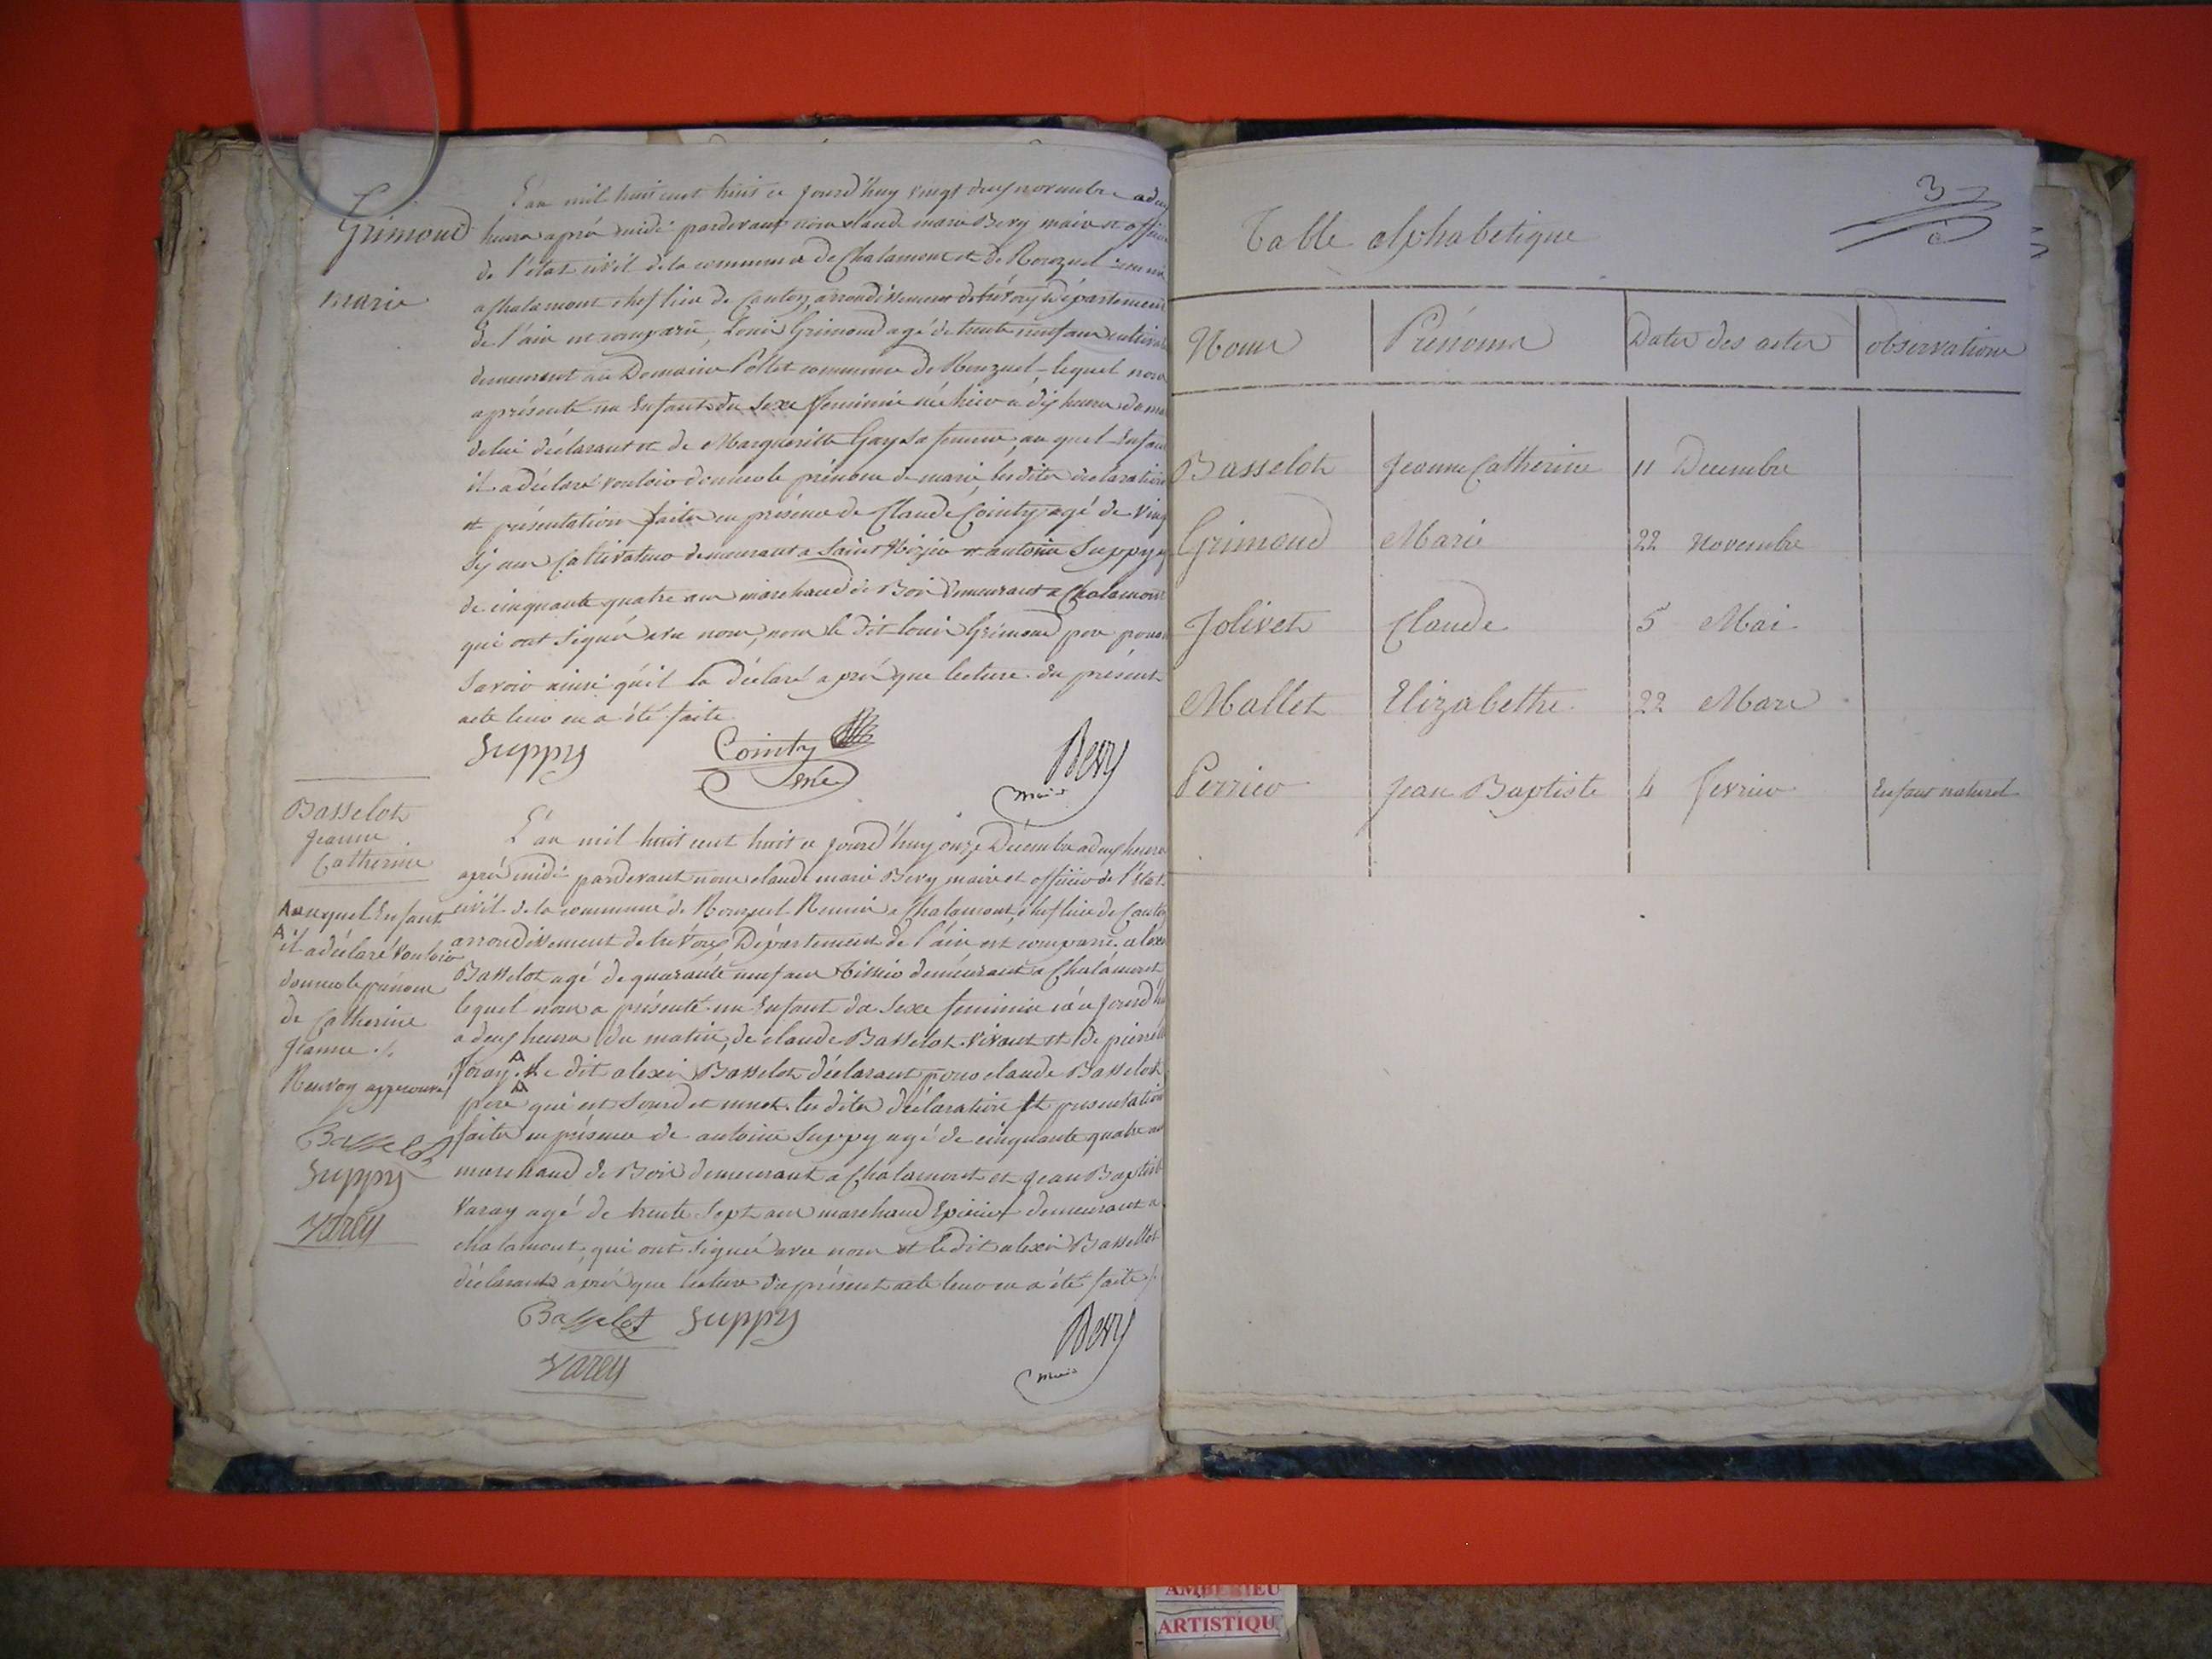 Grimoud
Marie
L'an mil huit cent huit ce jourd'huy vingt deux novembre a deux
heures après midi pardevant nous claude marie Bevy maire et officier
de l'état civil de la commune de Chalamont et de Ronzuel reunie
a Chalamont chef lieu de Canton, arrondissement de trévoux Département
de l'ain est comparu, Louis Grimoud agé de trente neuf ans cultivateur
demeurant au Domaine Pollet commune de Ronzuel lequel nous
a présenté un Enfant du Sexe feminin né hier a dix heures du matin
de lui déclarant et de Margueritte Gay sa femme, au quel Enfant
il a déclaré vouloir donner le prénom de marie, les dites déclaration
et présentation faites en présence de Claude Cointy agé de vingt
six ans Cultivateur demeurant a Saint Nizier et antoine Suppy agé
de cinquante quatre ans marchand de Bois demeurant a Chalamont
qui ont signé avec nous, non le dit louis Grimoud pere pour
Savoir ainsi qu'il la déclaré après que lecture du présent
acte leur en a été faite
Suppy Cointy Bevy
maire
Basselot
Jeanne
Catherine
L'an mil huit cent huit ce jourd'huy onze Décembre a deux heures
après midi pardevant nous claude marie Bevy maire et officier de l'état
civil de la commune de Ronzuel Reunie a Chalamont, chef lieu de Canton
arrondissement de trévoux Département de l'ain est comparu alexis
Basselot agé de quarante neuf ans tissier demeurant a Chalamont
lequel nous a présenté un Enfant du Sexe feminin né ce jourd'huy
a deux heures du matin, de claude Basselot vivant et de pierrette
Voray. le dit alexis Basselot déclarant pour claude Basselot
pere qui est Sourd et muet. les dites déclaration et presentation
faites en présence de antoine Suppy agé de cinquante quatre ans
marchand de Bois demeurant a Chalamont et jean Baptiste
Varay agé de trente Sept ans marchand Epicier demeurant a
chalamont, qui ont signé avec nous et le dit alexis Basselot
déclarant après que lecture du présent acte leur en a été faite
A auquel Enfant
A il a déclaré vouloir
donner le prénom
de Catherine
Jeanne ./.
Renvoy approuvé
Basselot
Suppy
Varey
Basselot Suppy Bevy
Varey maire
3
Table alphabetique
Noms Prénoms Dates des actes observations
Basselot Jeanne Catherine 11 Decembre
Grimoud Marie 22 Novembre
Jolivet Claude 5 Mai
Mallet Elizabethe 22 Mars
Perrier Jean Baptiste 4 fevrier Enfant naturel
ARTISTIQU